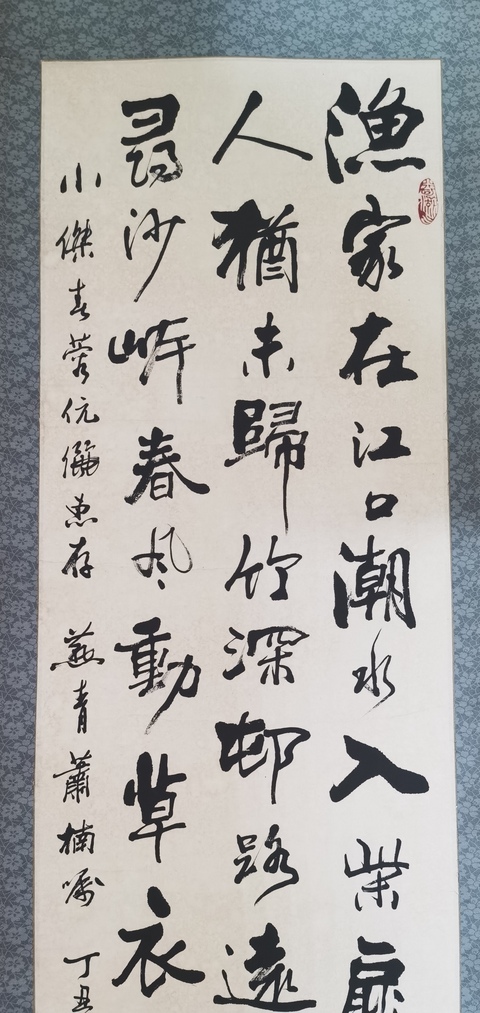 漁家在江口潮水入柴扉
人猶未歸竹深邨路遠
尋沙岸春風動草衣
小傑春蓉伉儷惠存 燕青蕭楠囑 丁丑